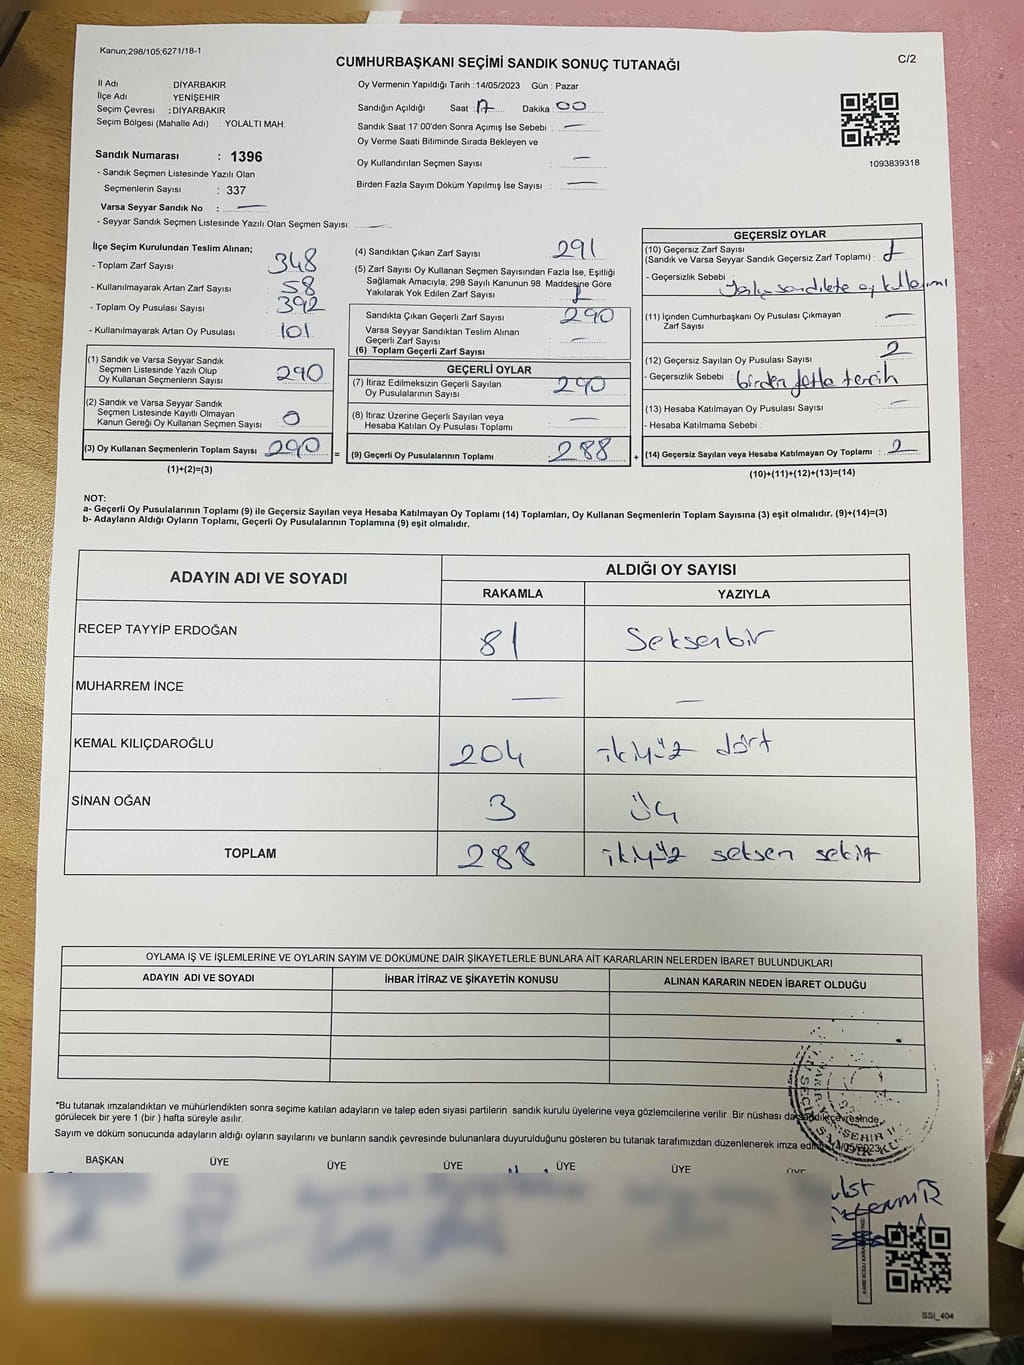 Kanun,298/105,6271/18-1
CUMHURBAŞKANI SEÇİMİ SANDIK SONUÇ TUTANAĞI
C/2
İl Adı : DİYARBAKIR
İlçe Adı : YENİŞEHİR
Seçim Çevresi : DİYARBAKIR
Seçim Bölgesi (Mahalle Adı) : YOLALTI MAH.
Oy Vermenin Yapıldığı Tarih : 14/05/2023 Gün : Pazar
Sandığın Açıldığı Saat 17 Dakika 00
Sandık Saat 17:00'den Sonra Açımış İse Sebebi : —
Oy Verme Saati Bitiminde Sırada Bekleyen ve
Oy Kullandırılan Seçmen Sayısı : —
Birden Fazla Sayım Döküm Yapılmış İse Sayısı : —
1093839318
Sandık Numarası : 1396
- Sandık Seçmen Listesinde Yazılı Olan
Seçmenlerin Sayısı : 337
Varsa Seyyar Sandık No : —
- Seyyar Sandık Seçmen Listesinde Yazılı Olan Seçmen Sayısı: —
İlçe Seçim Kurulundan Teslim Alınan;
- Toplam Zarf Sayısı : 348
- Kullanılmayarak Artan Zarf Sayısı : 58
- Toplam Oy Pusulası Sayısı : 392
- Kullanılmayarak Artan Oy Pusulası : 101
(1) Sandık ve Varsa Seyyar Sandık
Seçmen Listesinde Yazılı Olup
Oy Kullanan Seçmenlerin Sayısı : 290
(2) Sandık ve Varsa Seyyar Sandık
Seçmen Listesinde Kayıtlı Olmayan
Kanun Gereği Oy Kullanan Seçmen Sayısı : 0
(3) Oy Kullanan Seçmenlerin Toplam Sayısı : 290
(1)+(2)=(3)
(4) Sandıktan Çıkan Zarf Sayısı : 291
(5) Zarf Sayısı Oy Kullanan Seçmen Sayısından Fazla İse, Eşitliği
Sağlamak Amacıyla; 298 Sayılı Kanunun 98. Maddesine Göre
Yakılarak Yok Edilen Zarf Sayısı : 1
Sandıkta Çıkan Geçerli Zarf Sayısı : 290
Varsa Seyyar Sandıktan Teslim Alınan
Geçerli Zarf Sayısı : —
(6) Toplam Geçerli Zarf Sayısı
GEÇERLİ OYLAR
(7) İtiraz Edilmeksizin Geçerli Sayılan
Oy Pusulalarının Sayısı : 290
(8) İtiraz Üzerine Geçerli Sayılan veya
Hesaba Katılan Oy Pusulası Toplamı : —
= (9) Geçerli Oy Pusulalarının Toplamı : 288
GEÇERSİZ OYLAR
(10) Geçersiz Zarf Sayısı
(Sandık ve Varsa Seyyar Sandık Geçersiz Zarf Toplamı) : 1
- Geçersizlik Sebebi : sandıkta oy kullanımı
(11) İçinden Cumhurbaşkanı Oy Pusulası Çıkmayan
Zarf Sayısı : —
(12) Geçersiz Sayılan Oy Pusulası Sayısı : 2
- Geçersizlik Sebebi : birden fazla tercih
(13) Hesaba Katılmayan Oy Pusulası Sayısı : —
- Hesaba Katılmama Sebebi :
+ (14) Geçersiz Sayılan veya Hesaba Katılmayan Oy Toplamı : 2
(10)+(11)+(12)+(13)=(14)
NOT:
a- Geçerli Oy Pusulalarının Toplamı (9) ile Geçersiz Sayılan veya Hesaba Katılmayan Oy Toplamı (14) Toplamları, Oy Kullanan Seçmenlerin Toplam Sayısına (3) eşit olmalıdır. (9)+(14)=(3)
b- Adayların Aldığı Oyların Toplamı, Geçerli Oy Pusulalarının Toplamına (9) eşit olmalıdır.
ADAYIN ADI VE SOYADI ALDIĞI OY SAYISI
RAKAMLA YAZIYLA
RECEP TAYYİP ERDOĞAN 81 Seksenbir
MUHARREM İNCE — —
KEMAL KILIÇDAROĞLU 204 ikiyüz dört
SİNAN OĞAN 3 üç
TOPLAM 288 ikiyüz seksen sekiz
OYLAMA İŞ VE İŞLEMLERİNE VE OYLARIN SAYIM VE DÖKÜMÜNE DAİR ŞİKAYETLERLE BUNLARA AİT KARARLARIN NELERDEN İBARET BULUNDUKLARI
ADAYIN ADI VE SOYADI İHBAR İTİRAZ VE ŞİKAYETİN KONUSU ALINAN KARARIN NEDEN İBARET OLDUĞU
*Bu tutanak imzalandıktan ve mühürlendikten sonra seçime katılan adayların ve talep eden siyasi partilerin sandık kurulu üyelerine veya gözlemcilerine verilir .Bir nüshası da sandık çevresinde
görülecek bir yere 1 (bir ) hafta süreyle asılır.
Sayım ve döküm sonucunda adayların aldığı oyların sayılarını ve bunların sandık çevresinde bulunanlara duyurulduğunu gösteren bu tutanak tarafımızdan düzenlenerek imza edildi. 14/05/2023
BAŞKAN ÜYE ÜYE ÜYE ÜYE ÜYE ÜYE
SSI_404